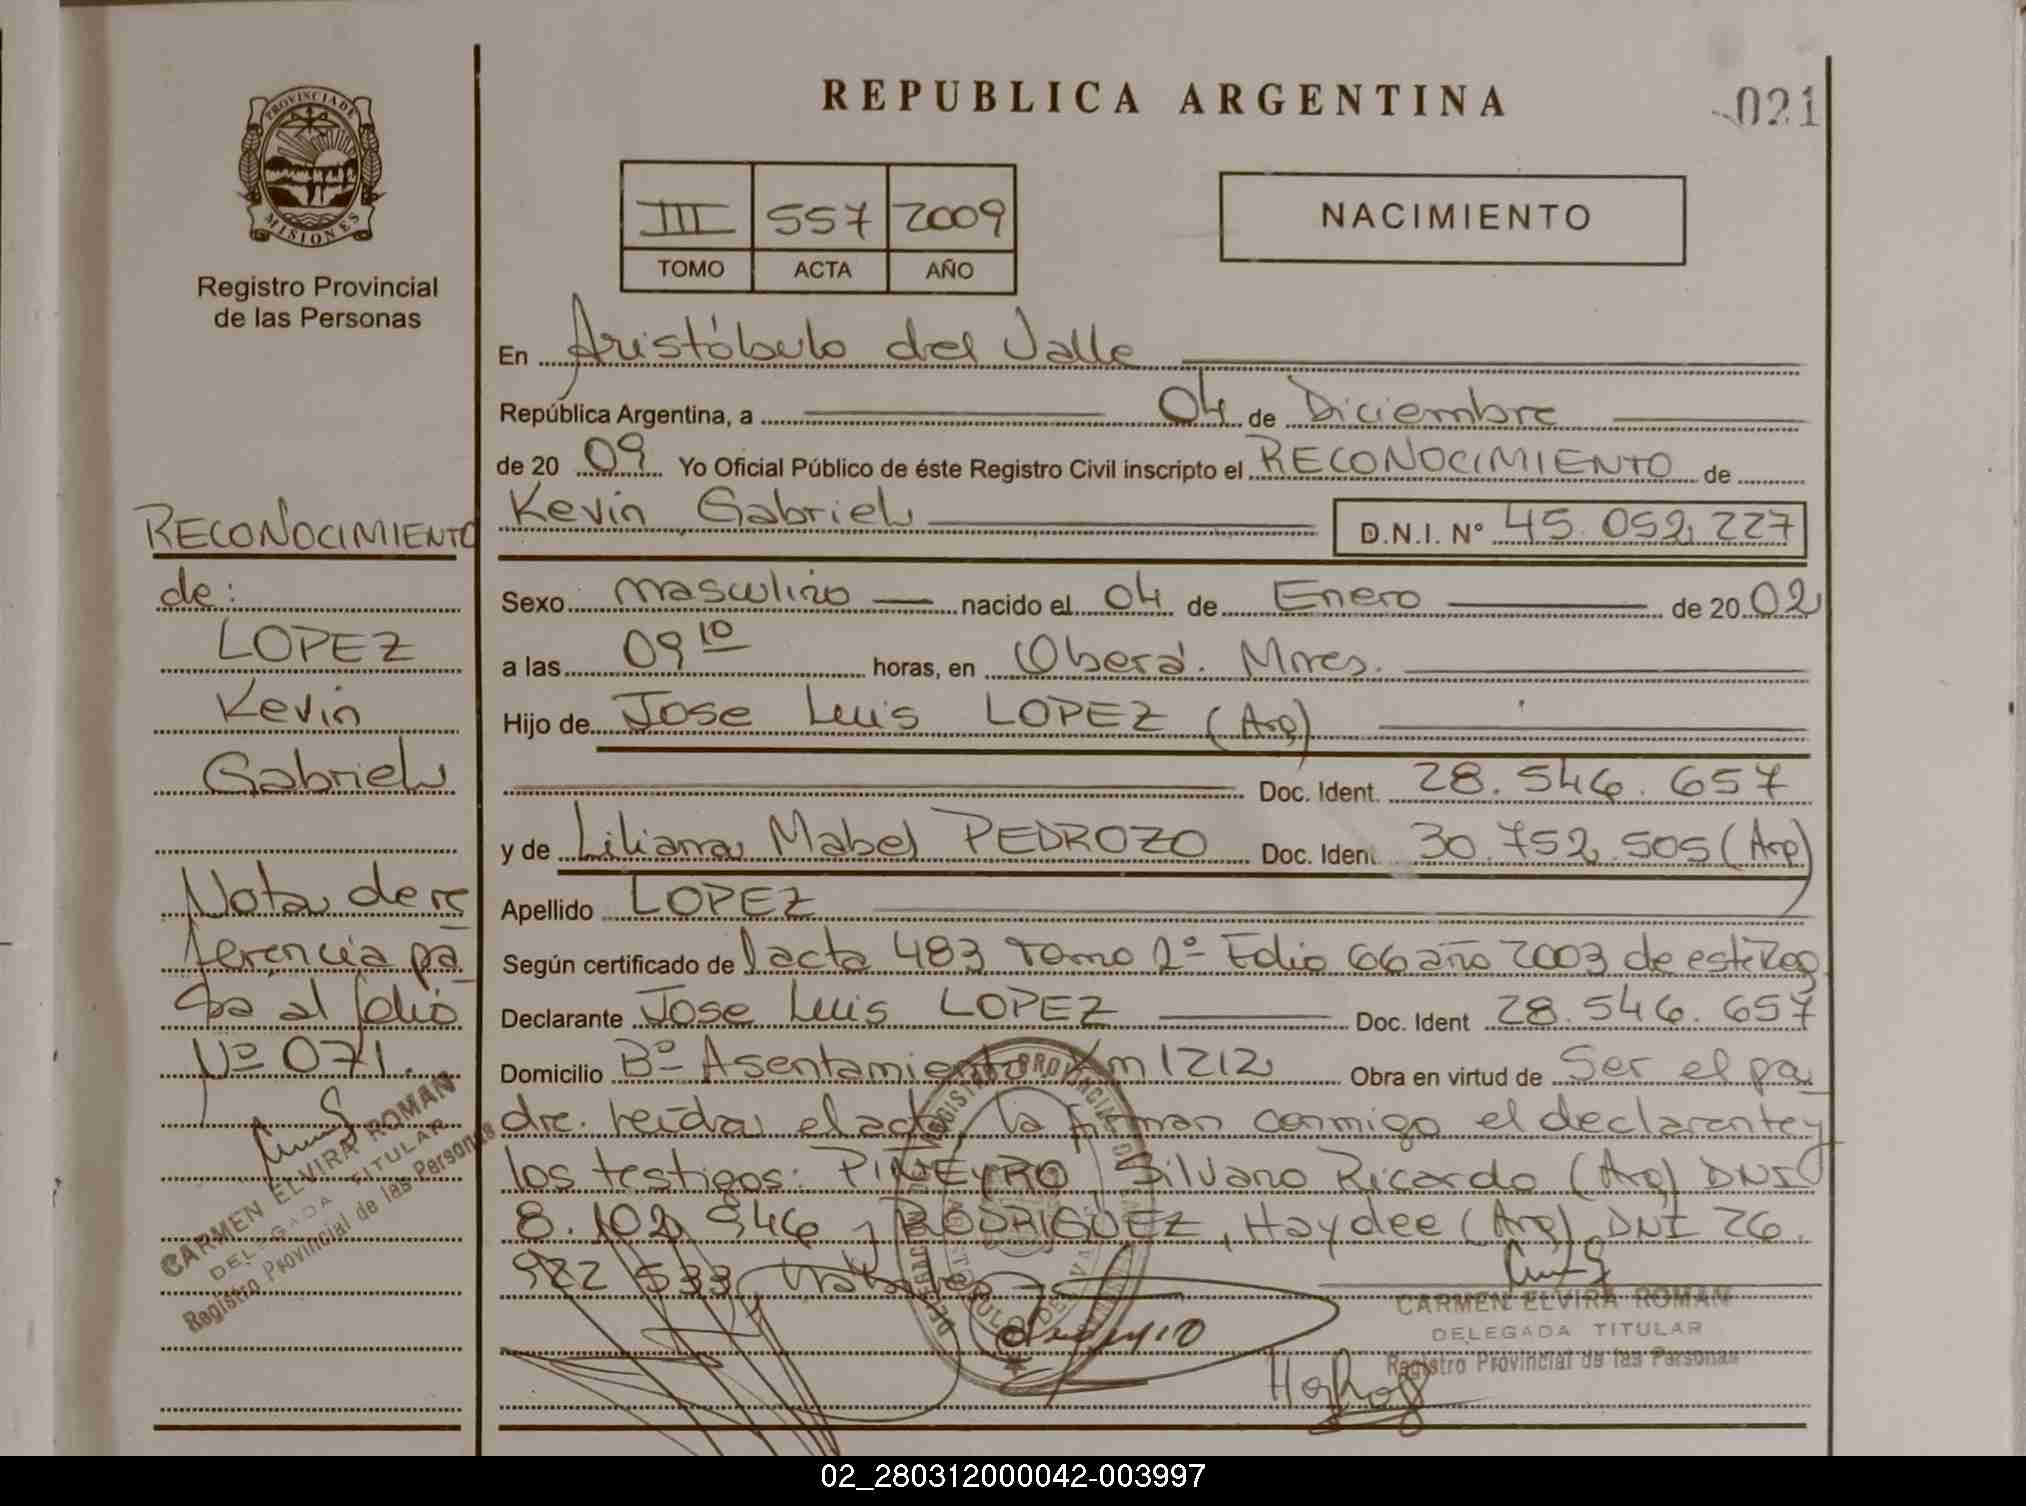 REPUBLICA ARGENTINA
021
PROVINCIA DE
MISIONES
Registro Provincial
de las Personas
III 557 2009
TOMO ACTA AÑO
NACIMIENTO
En Aristóbulo del Valle
República Argentina, a 04 de Diciembre
de 20 09 Yo Oficial Público de éste Registro Civil inscripto el RECONOCIMIENTO de
Kevin Gabriel D.N.I. N° 45.052.227
Sexo masculino nacido el 04 de Enero de 20 02
a las 09 10 horas, en Oberá. Mnes.
Hijo de Jose Luis LOPEZ (Arg)
Doc. Ident. 28.546.657
y de Liliana Mabel PEDROZO Doc. Iden. 30.752.505 (Arg)
Apellido LOPEZ
Según certificado de l acta 483 Tomo 2º Folio 66 año 2003 de este Reg
Declarante Jose Luis LOPEZ Doc. Ident 28.546.657
Domicilio Bº Asentamiento Km 1212 Obra en virtud de Ser el pa
dre. leída el acta, la firman conmigo el declarante y
los testigos: PIÑEYRO, Silvano Ricardo (Arg) DNI
8.102.946 y RODRIGUEZ, Haydee (Arg) DNI 26.
922 533
CARMEN ELVIRA ROMAN
DELEGADA TITULAR
Registro Provincial de las Personas
RECONOCIMIENTO
de:
LOPEZ
Kevin
Gabriel
Nota de re
ferencia pa
sa al folio
Nº 071.
CARMEN ELVIRA ROMAN
DELEGADA TITULAR
Registro Provincial de las Personas
02_280312000042-003997